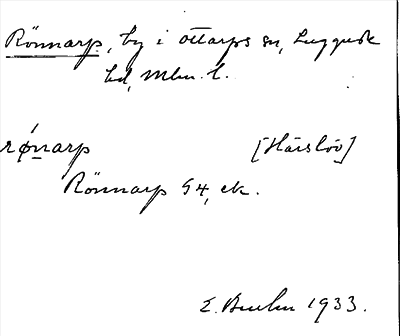 Rönnarp, by i Ottarps sn, Luggude
hd, Mlm. l.
rǿnarp [Härslöv]
Rönnarp S4, ek.
E. Bruhn 1933.